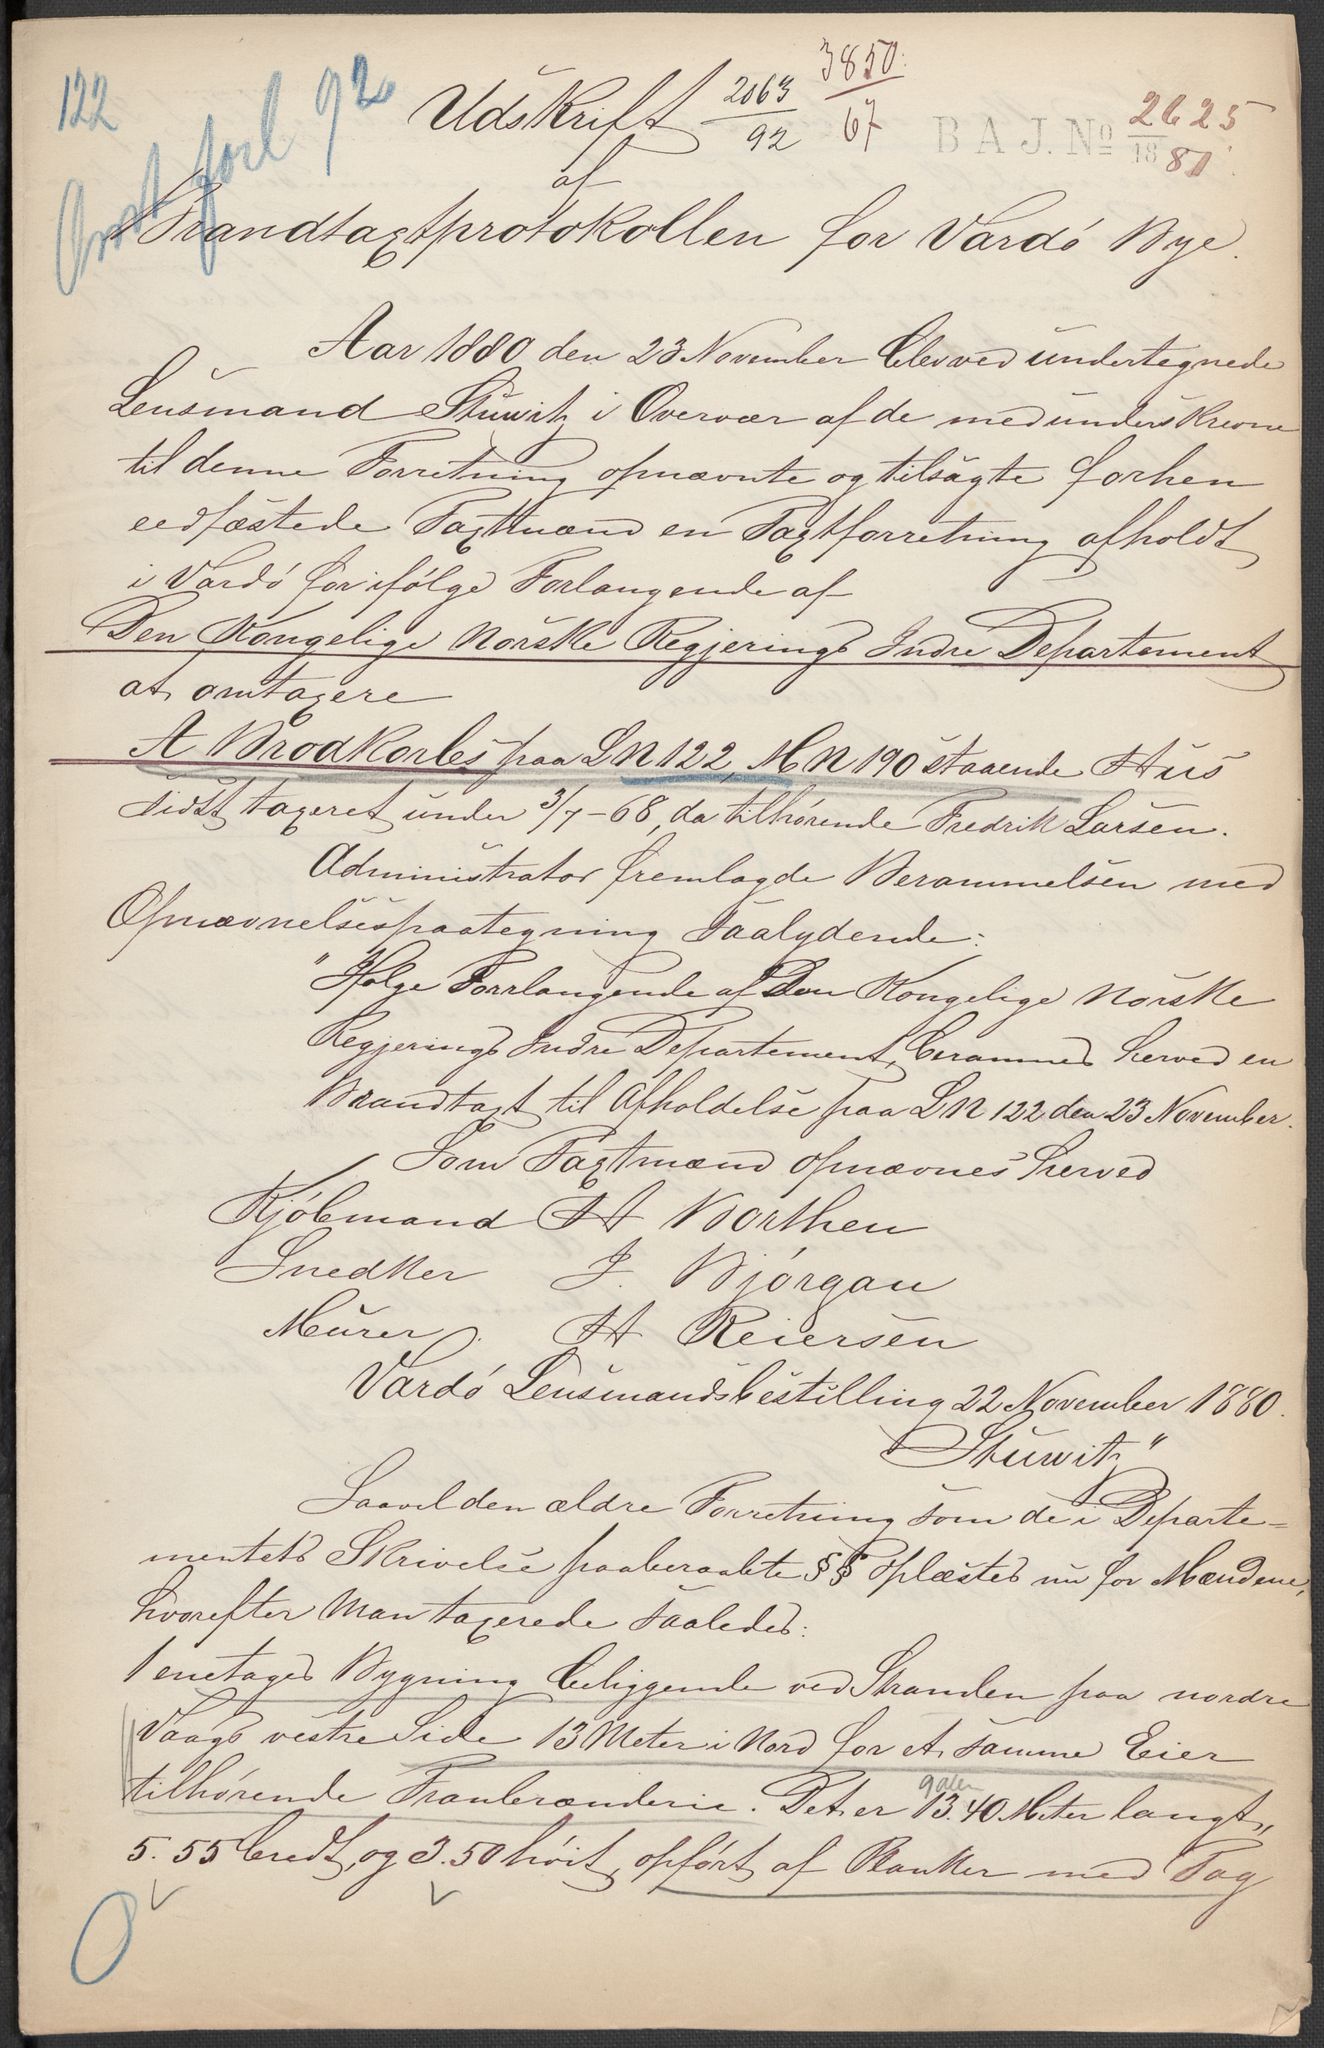 122
Udskrift 2063/92 3850/67
B A J. No 2625/1881
af
Brandtaxtprotokollen for Vardö Bye.
Aar 1880 den 23 November blev ved undertegnede
Lensmand Stuwitz i Overvær af de medunderskrevne
til denne Forretning opnævnte og tilsagte forhen
eedfæstede Taxtmænd en Taxtforretning afholdt
i Vardö for ifölge Forlangende af
Den Kongelige Norske Regjerings Indre Departement
at omtaxere
A Brodkorbs paa LN 122, MN 190 staaende Hus
sidst taxeret under 3/7-68, da tilhörende Fredrik Larsen.
Administrator fremlagde Berammelsen med
Opnævnelsespaategning saalydende:
"Ifölge Forrlangende af Den Kongelige Norske
Regjerings Indre Departement, berammes herved en
Brandtaxt til Afholdelse paa LN 122 den 23 November.
Som Taxtmænd opnævnes herved
Kjöbmand H Borthen
Snedker J. Bjórgan
Murer. H Reiersen
Vardö Lensmandsbestilling 22 November 1880.
Stuwitz"
Saavel den ældre Forretning som de i Departe=
mentets Skrivelse paaberaabte §§ oplæstes nu for Mændene,
hvorefter Man taxerede saaledes:
1 enetages Bygning beliggende ved Stranden paa nordre
Vaags vestre Side 13 Meter i Nord for et samme Eier
tilhörende Tranbrænderie. Det er 13.40 Meter langt,
5.55 bredt, og 3.50 höit, opfört af Planker med Tag